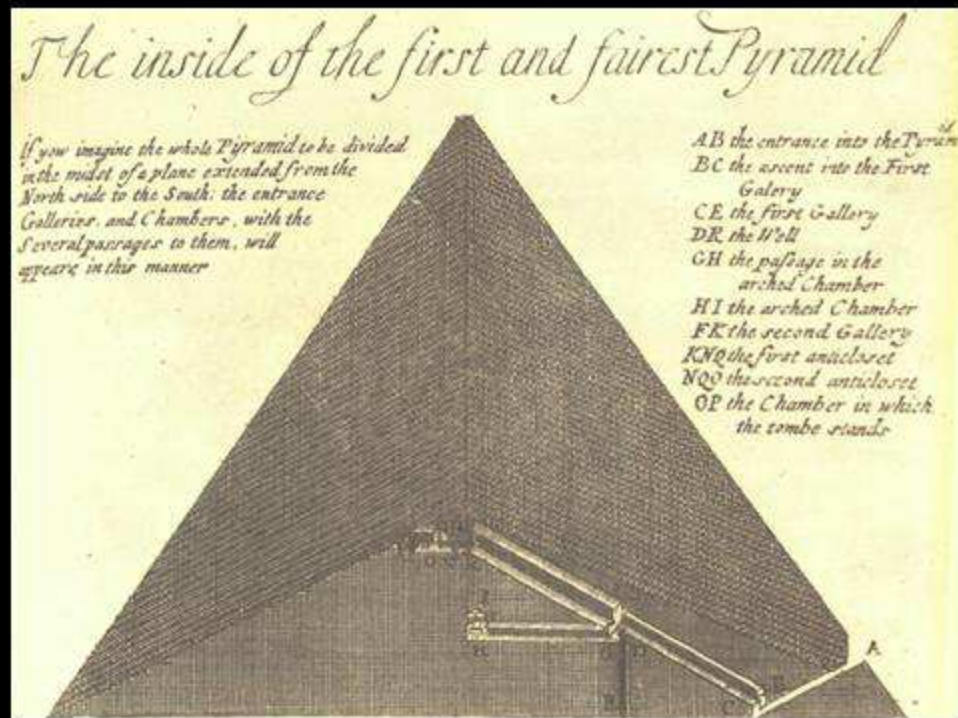 The inside of the first and fairest Pyramid
If yow imagine the whole Pyramid to be divided
in the midst of a plane extended from the
North side to the South: the entrance
Galleries, and Chambers, with the
Severall passages to them, will
appeare in this manner
AB the entrance into the Pyramid
BC the ascent into the First
Galery
CE the first Gallery
DR the Well
GH the passage in the
arched Chamber
HI the arched Chamber
FK the second Gallery
KNQ the first anticloset
NQO the second anticloset
OP the Chamber in which
the tombe stands
A
I
H
C